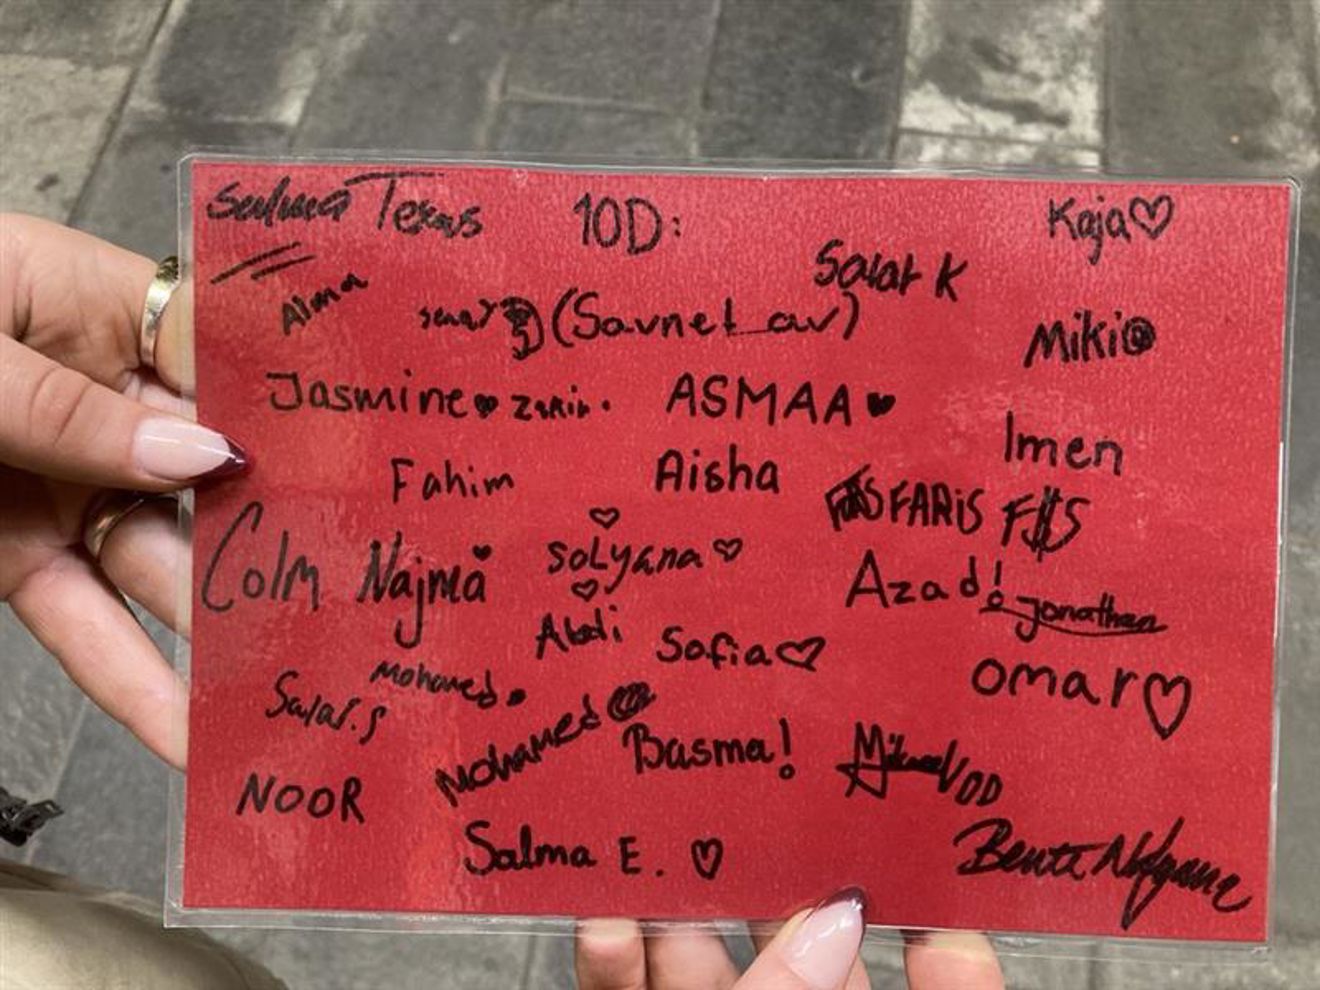 Salma Texas 10D: Kaja♡
Salar K
Alma
(Savnet_av)
Miki
Jasmine♥ ASMAA♥
Imen
Fahim Aisha
FARIS F$S
Colm Najma solyana♡
Azad!
Jonathan
Abdi Sofia♡
Mohamed. omar♡
Salar.S
Mohamed Basma!
NOOR
Salma E. ♡
Bente